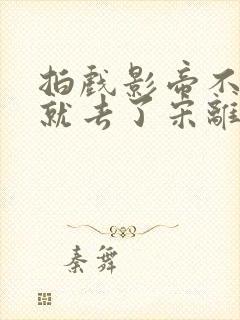 拍戏影帝不
就去了宋離
秦舞